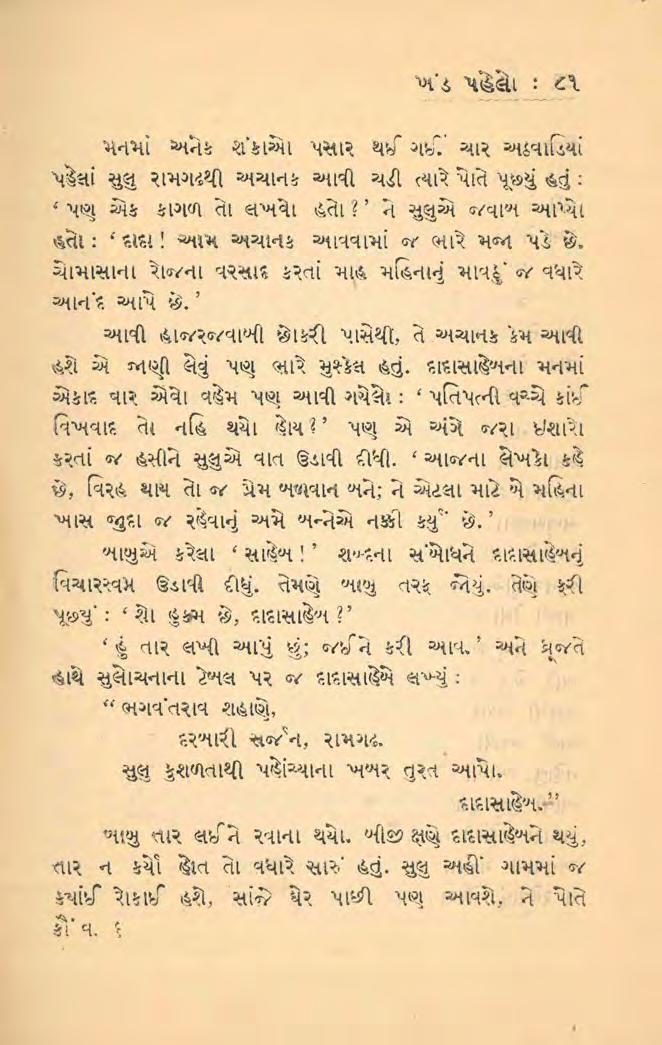 ખંડ પહેલો : ૮૧
મનમાં અનેક શંકાઓ પસાર થઈ ગઈ. ચાર અઠવાડિયાં
પહેલાં સુલુ રામગઢથી અચાનક આવી ચડી ત્યારે પોતે પૂછ્યું હતું :
‘ પણ એક કાગળ તો લખવો હતો ? ’ ને સુલુએ જવાબ આપ્યો
હતો : ‘ દાદા ! આમ અચાનક આવવામાં જ ભારે મજા પડે છે.
ચોમાસાના રોજના વરસાદ કરતાં માહ મહિનાનું માવઠું જ વધારે
આનંદ આપે છે. ’
આવી હાજરજવાબી છોકરી પાસેથી, તે અચાનક કેમ આવી
હશે એ જાણી લેવું પણ ભારે મુશ્કેલ હતું. દાદાસાહેબના મનમાં
એકાદ વાર એવો વહેમ પણ આવી ગયેલો : ‘ પતિપત્ની વચ્ચે કાંઈ
વિખવાદ તો નહિ થયો હોય ? ’ પણ એ અંગે જરા ઇશારો
કરતાં જ હસીને સુલુએ વાત ઉડાવી દીધી. ‘ આજના લેખકો કહે
છે, વિરહ થાય તો જ પ્રેમ બળવાન બને; ને એટલા માટે બે મહિના
ખાસ જુદા જ રહેવાનું અમે બન્નેએ નક્કી કર્યું છે. ’
બાબુએ કરેલા ‘ સાહેબ ! ’ શબ્દના સંબોધને દાદાસાહેબનું
વિચારસ્વપ્ન ઉડાવી દીધું. તેમણે બાબુ તરફ જોયું. તેણે ફરી
પૂછયું : ‘ શો હુકમ છે, દાદાસાહેબ ? ’
‘ હું તાર લખી આપું છું; જઈને કરી આવ. ’ અને ધ્રૂજતે
હાથે સુલોચનાના ટેબલ પર જ દાદાસાહેબે લખ્યું :
“ ભગવંતરાવ શહાણે,
દરબારી સર્જન, રામગઢ.
સુલુ કુશળતાથી પહોંચ્યાના ખબર તુરત આપો.
દાદાસાહેબ.”
બાબુ તાર લઈને રવાના થયો. બીજી ક્ષણે દાદાસાહેબને થયું,
તાર ન કર્યો હોત તો વધારે સારું હતું. સુલુ અહીં ગામમાં જ
કયાંઈ રોકાઈ હશે, સાંજે ઘેર પાછી પણ આવશે, ને પોતે
ક્રૌંવ. ૬